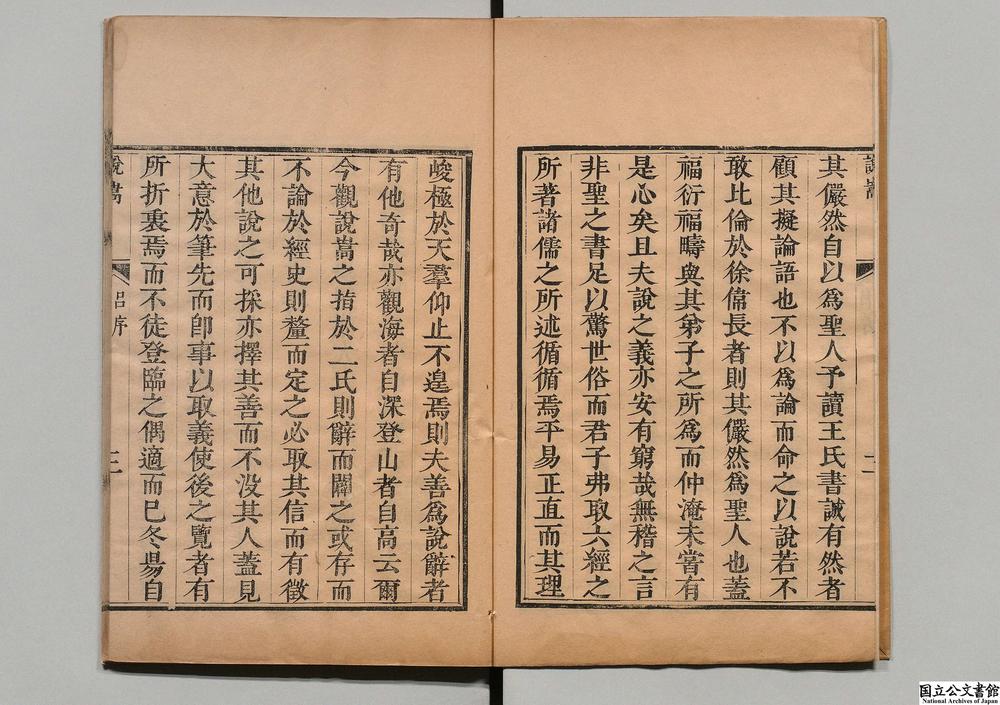 其儼然自以爲聖人予讀王氏書誠有然者
顧其擬論語也不以爲論而命之以說若不
敢比倫於徐偉長者則其儼然爲聖人也蓋
福衍福疇與其弟子之所爲而仲淹未嘗有
是心矣且夫說之義亦安有窮哉無稽之言
非聖之書足以驚世俗而君子弗取六經之
所著諸儒之所述循循焉平易正直而其理
說嵩
二
峻極於天羣仰止不遑焉則夫善爲說辭者
有他奇哉亦觀海者自深登山者自高云爾
今觀說嵩之指於二氏則辭而闢之或存而
不論於經史則釐而定之必取其信而有徵
其他說之可採亦擇其善而不没其人蓋見
大意於筆先而卽事以取義使後之覽者有
所折衷焉而不徒登臨之偶適而已冬昜自
說嵩
呂序
国立公文書館
National Archives of Japan